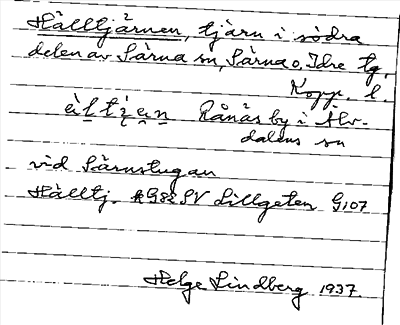 Hålltjärnen, tjärn i södra
delen av Särna sn, Särna o. Idre tg,
Kopp. l.
Rånås by i Älv-
dalens sn
vid Särnstugan
Hålltj. G82 SV Lillgeten G107
Helge Lindberg 1937.